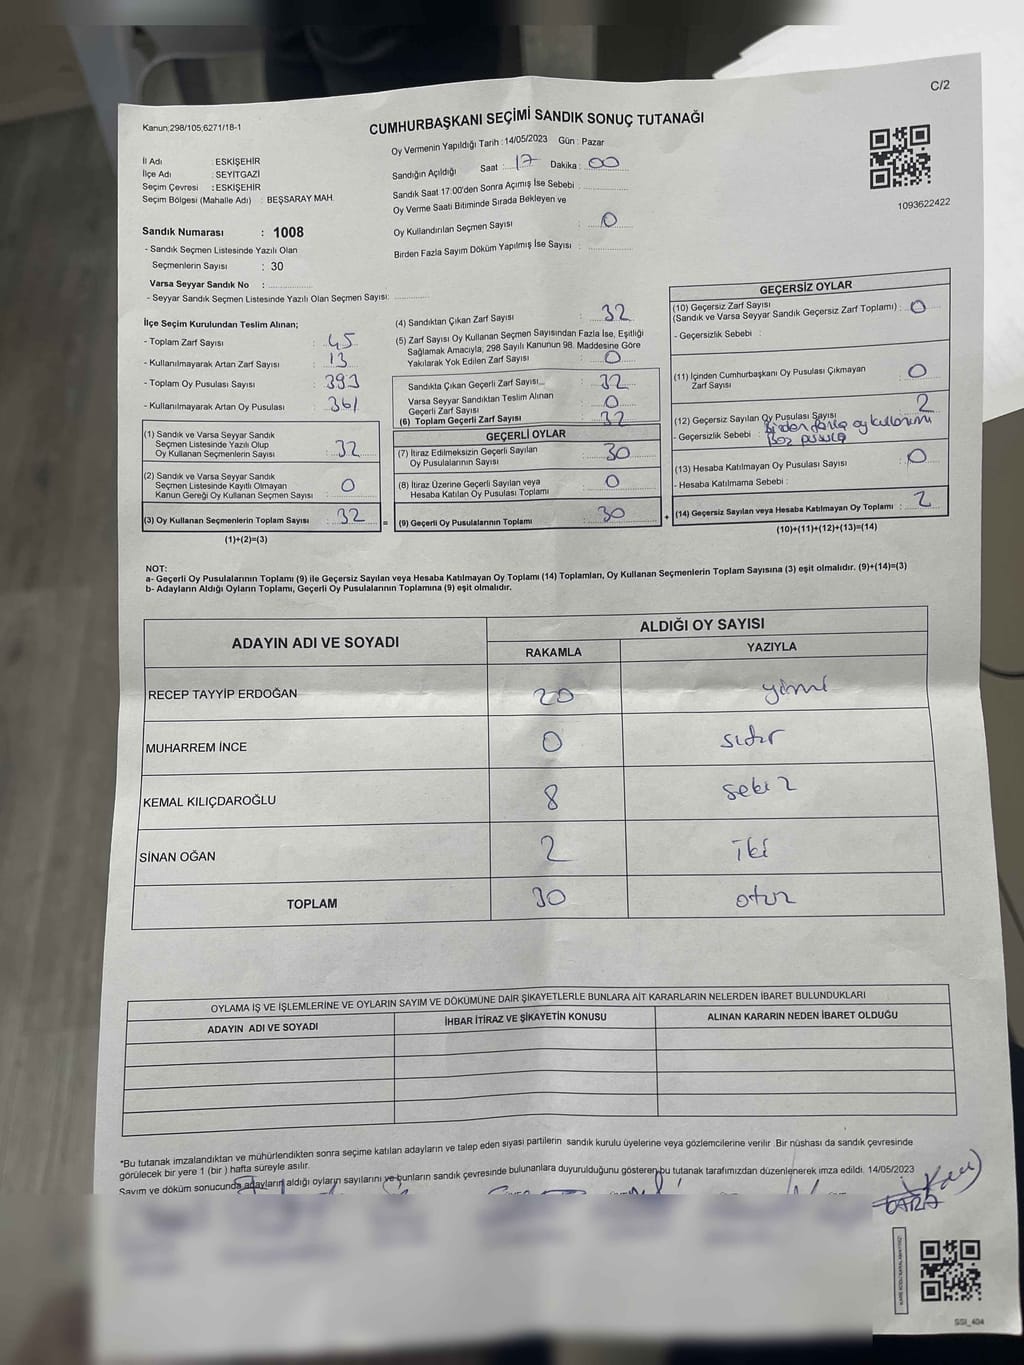 C/2
Kanun:298/105;6271/18-1
CUMHURBAŞKANI SEÇİMİ SANDIK SONUÇ TUTANAĞI
Oy Vermenin Yapıldığı Tarih : 14/05/2023 Gün : Pazar
İl Adı : ESKİŞEHİR
İlçe Adı : SEYİTGAZİ
Seçim Çevresi : ESKİŞEHİR
Seçim Bölgesi (Mahalle Adı) : BEŞSARAY MAH.
Sandığın Açıldığı Saat : 17 Dakika : 00
Sandık Saat 17:00'den Sonra Açımış İse Sebebi :
Oy Verme Saati Bitiminde Sırada Bekleyen ve
Oy Kullandırılan Seçmen Sayısı : 0
Birden Fazla Sayım Döküm Yapılmış İse Sayısı :
1093622422
Sandık Numarası : 1008
- Sandık Seçmen Listesinde Yazılı Olan
Seçmenlerin Sayısı : 30
Varsa Seyyar Sandık No :
- Seyyar Sandık Seçmen Listesinde Yazılı Olan Seçmen Sayısı:
İlçe Seçim Kurulundan Teslim Alınan;
- Toplam Zarf Sayısı : 45
- Kullanılmayarak Artan Zarf Sayısı : 13
- Toplam Oy Pusulası Sayısı : 393
- Kullanılmayarak Artan Oy Pusulası : 361
(1) Sandık ve Varsa Seyyar Sandık
Seçmen Listesinde Yazılı Olup
Oy Kullanan Seçmenlerin Sayısı : 32
(2) Sandık ve Varsa Seyyar Sandık
Seçmen Listesinde Kayıtlı Olmayan
Kanun Gereği Oy Kullanan Seçmen Sayısı : 0
(3) Oy Kullanan Seçmenlerin Toplam Sayısı : 32
(1)+(2)=(3)
(4) Sandıktan Çıkan Zarf Sayısı : 32
(5) Zarf Sayısı Oy Kullanan Seçmen Sayısından Fazla İse, Eşitliği
Sağlamak Amacıyla, 298 Sayılı Kanunun 98. Maddesine Göre
Yakılarak Yok Edilen Zarf Sayısı : 0
Sandıkta Çıkan Geçerli Zarf Sayısı : 32
Varsa Seyyar Sandıktan Teslim Alınan
Geçerli Zarf Sayısı : 0
(6) Toplam Geçerli Zarf Sayısı : 32
GEÇERLİ OYLAR
(7) İtiraz Edilmeksizin Geçerli Sayılan
Oy Pusulalarının Sayısı : 30
(8) İtiraz Üzerine Geçerli Sayılan veya
Hesaba Katılan Oy Pusulası Toplamı : 0
= (9) Geçerli Oy Pusulalarının Toplamı : 30 +
GEÇERSİZ OYLAR
(10) Geçersiz Zarf Sayısı
(Sandık ve Varsa Seyyar Sandık Geçersiz Zarf Toplamı) : 0
- Geçersizlik Sebebi :
(11) İçinden Cumhurbaşkanı Oy Pusulası Çıkmayan
Zarf Sayısı : 0
(12) Geçersiz Sayılan Oy Pusulası Sayısı : 2
- Geçersizlik Sebebi : Birden fazla oy kullanımı
Boş pusula
(13) Hesaba Katılmayan Oy Pusulası Sayısı : 0
- Hesaba Katılmama Sebebi :
(14) Geçersiz Sayılan veya Hesaba Katılmayan Oy Toplamı : 2
(10)+(11)+(12)+(13)=(14)
NOT:
a- Geçerli Oy Pusulalarının Toplamı (9) ile Geçersiz Sayılan veya Hesaba Katılmayan Oy Toplamı (14) Toplamları, Oy Kullanan Seçmenlerin Toplam Sayısına (3) eşit olmalıdır. (9)+(14)=(3)
b- Adayların Aldığı Oyların Toplamı, Geçerli Oy Pusulalarının Toplamına (9) eşit olmalıdır.
ADAYIN ADI VE SOYADI ALDIĞI OY SAYISI
RAKAMLA YAZIYLA
RECEP TAYYİP ERDOĞAN 20 yirmi
MUHARREM İNCE 0 sıfır
KEMAL KILIÇDAROĞLU 8 sekiz
SİNAN OĞAN 2 iki
TOPLAM 30 otuz
OYLAMA İŞ VE İŞLEMLERİNE VE OYLARIN SAYIM VE DÖKÜMÜNE DAİR ŞİKAYETLERLE BUNLARA AİT KARARLARIN NELERDEN İBARET BULUNDUKLARI
ADAYIN ADI VE SOYADI İHBAR İTİRAZ VE ŞİKAYETİN KONUSU ALINAN KARARIN NEDEN İBARET OLDUĞU
*Bu tutanak imzalandıktan ve mühürlendikten sonra seçime katılan adayların ve talep eden siyasi partilerin sandık kurulu üyelerine veya gözlemcilerine verilir .Bir nüshası da sandık çevresinde
görülecek bir yere 1 (bir ) hafta süreyle asılır.
Sayım ve döküm sonucunda adayların aldığı oyların sayılarını ve bunların sandık çevresinde bulunanlara duyurulduğunu gösteren bu tutanak tarafımızdan düzenlenerek imza edildi. 14/05/2023
SSI_404